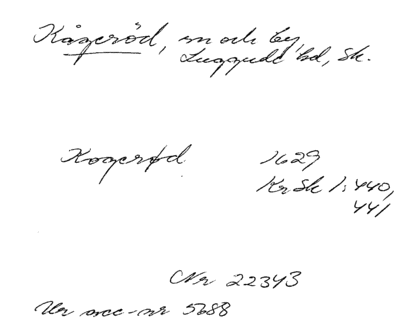 Kågeröd, sn och by,
Luggude hd, Sk.
Kogerød 1629
KrSk 1:440,
441
Nr 22343
Ur acc-nr 5688